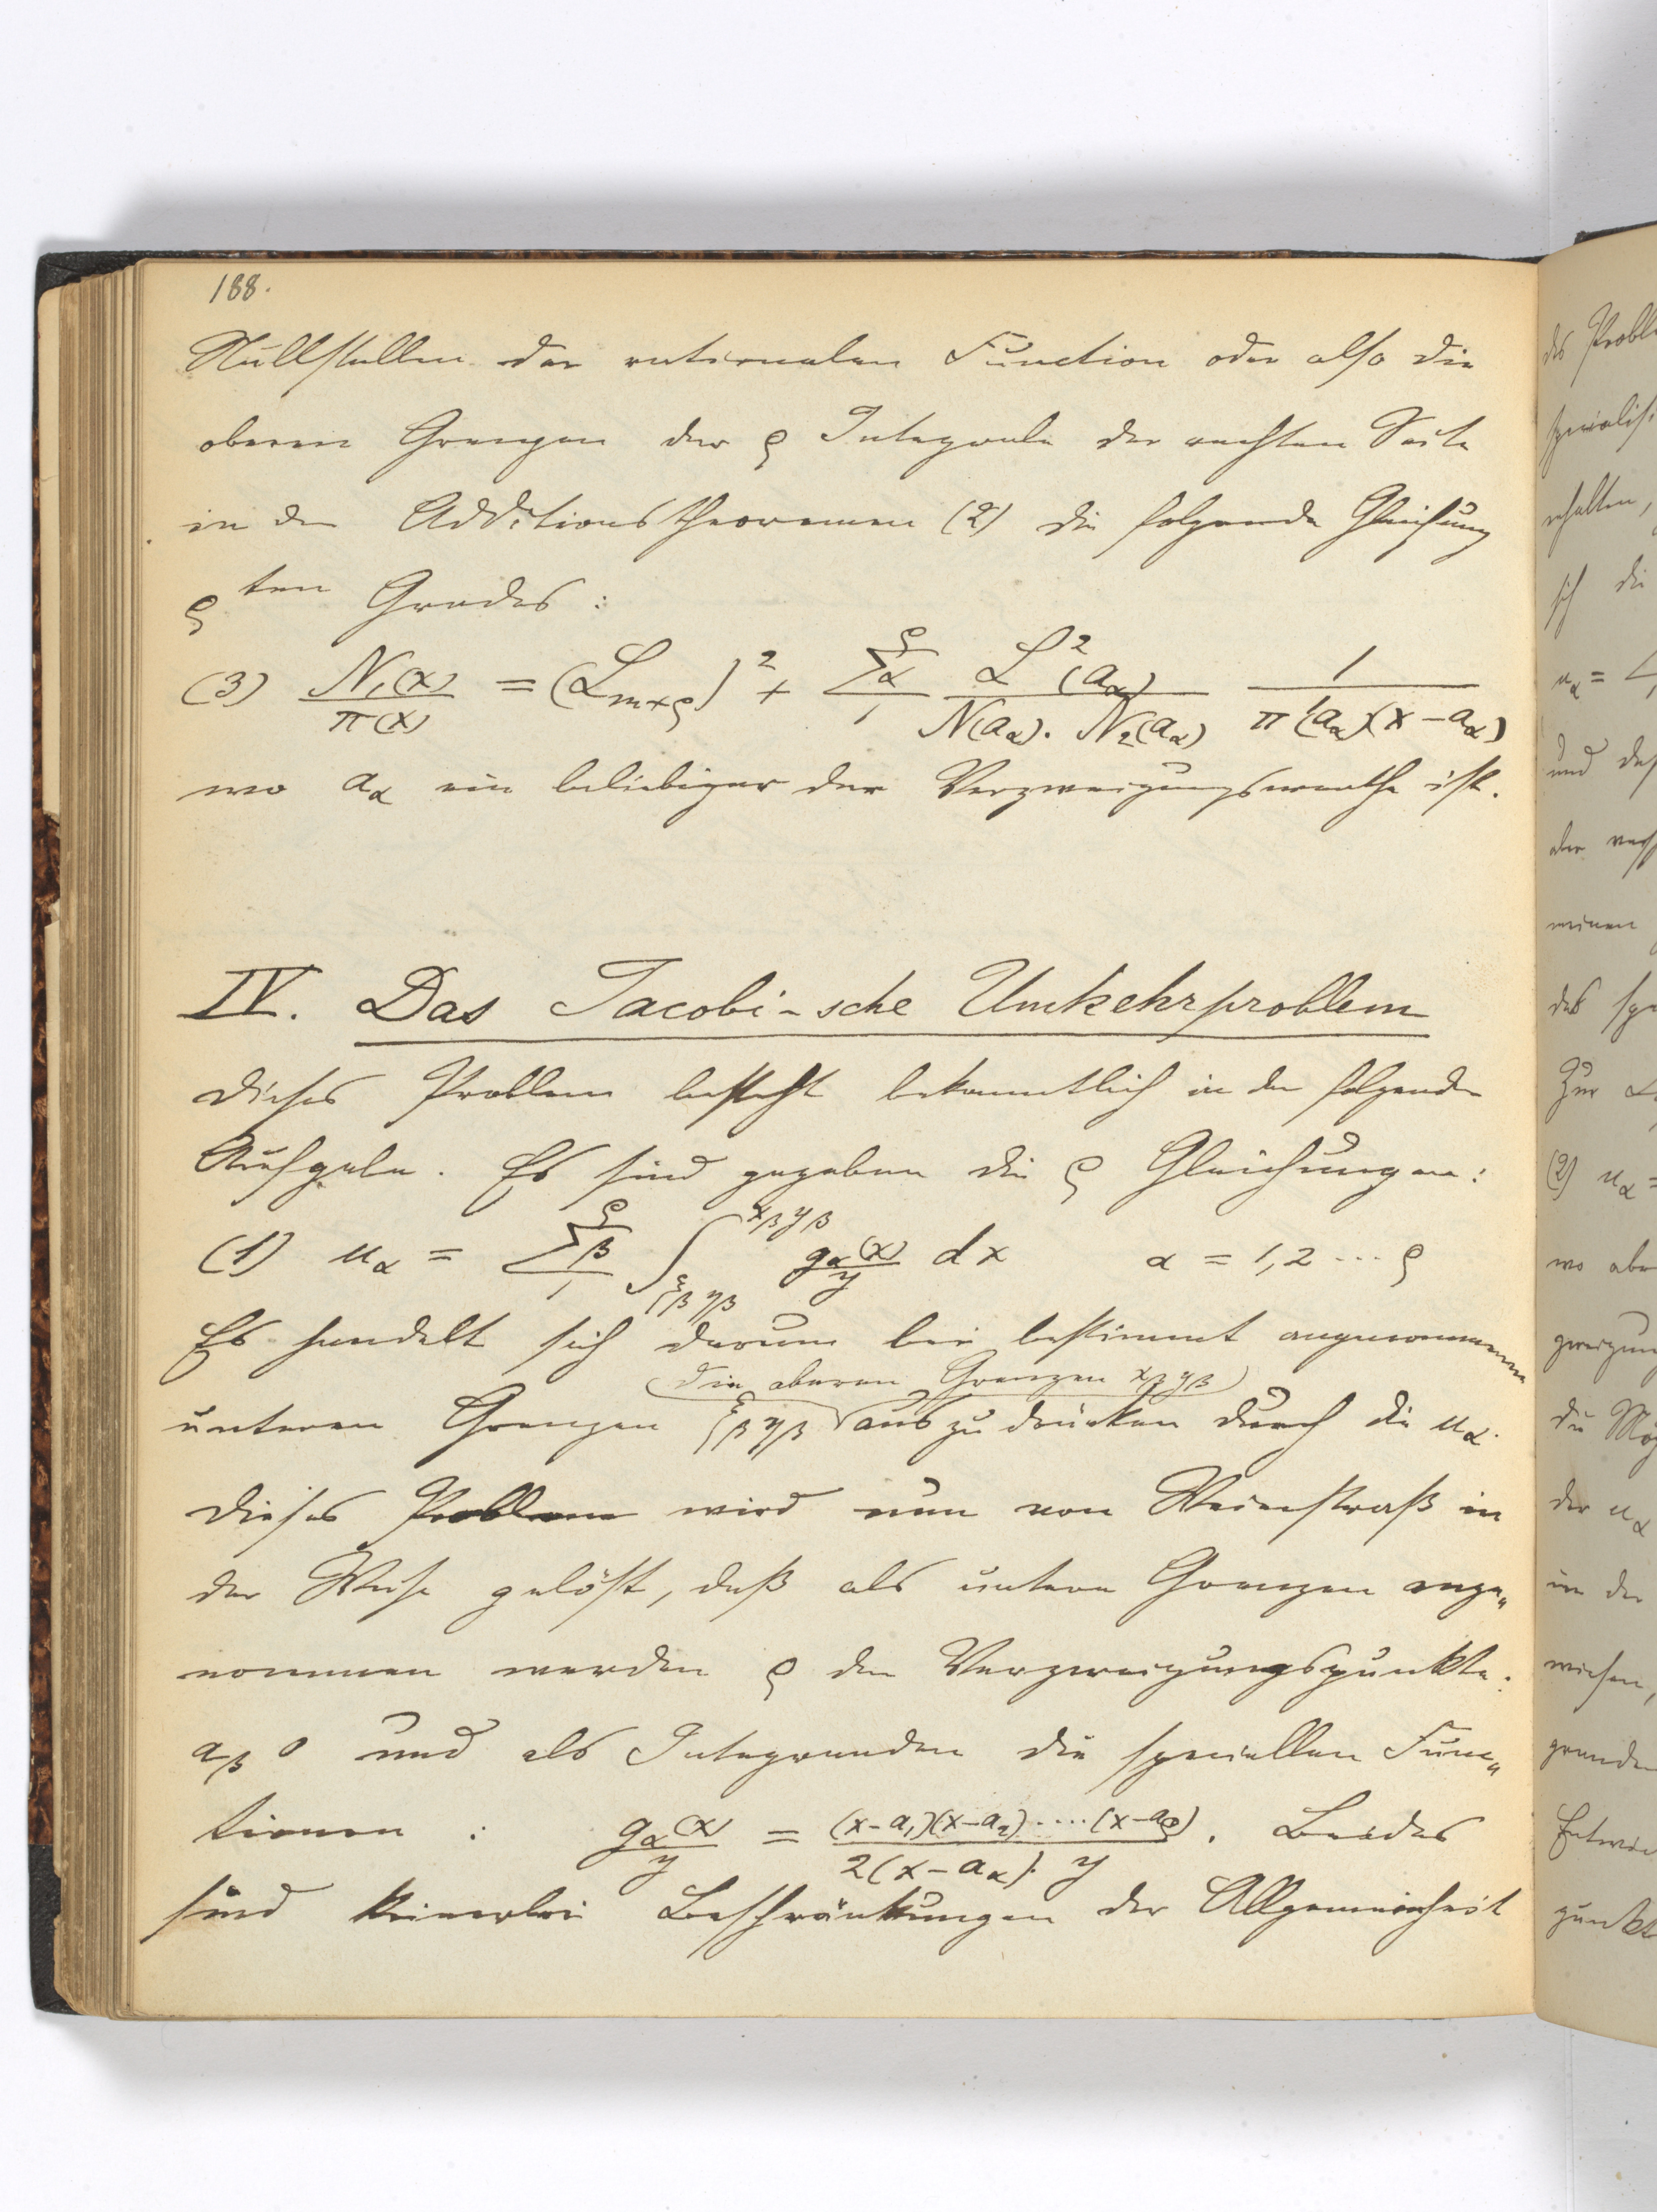 188.
Nullstellen der rationalen Function oder also die
oberen Grenzen der ρ Integrale der rechten Seite
in den Additionstheoremen (2) die folgende Gleichung
ρ^ten Grades:
(3) N₁(x)/π(x) = (L_{m+ρ})² + Σ_α₁^ρ L²(a_α)/(N(a_α).N₂(a_α)) 1/(π'(a_α)(x-a_α))
wo a_α ein beliebiger der Verzweigungswerthe ist.
IV. Das Jacobi-sche Umkehrproblem
Dieses Problem besteht bekanntlich in der folgenden
Aufgabe. Es sind gegeben die ρ Gleichungen:
(1) u_α = Σ_β₁^ρ ∫_{ξ_β η_β}^{x_β y_β} g_α(x)/y dx α = 1,2 ... ρ
Es handelt sich darum bei bestimmt angenommenen
die oberen Grenzen x_β y_β
unteren Grenzen ξ_β η_β auszudrücken durch die u_α.
Dieses Problem wird nun von Weierstraß in
der Weise gelöst, daß als untere Grenzen ange„
nommen werden ρ der Verzweigungspunkte.
a_β 0 und als Integranden die speciellen Func„
tionen : g_α(x)/y = (x-a₁)(x-a₂)....(x-a_ρ)/(2(x-a_α).y). Beides
sind keinerlei Beschränkungen der Allgemeinheit
des Probl
erhalten,
sich die
u_α =
und
aber
meinen
des
Zur
(2) u_α =
wo aber
der u_α
in der